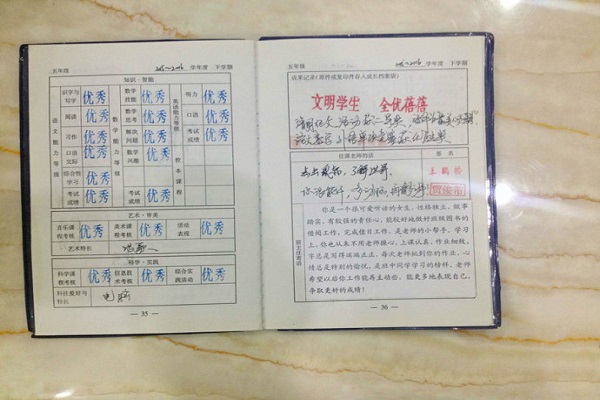 五年级 2015~2016 学年度 下学期
知识·智能
语文能力等级
识字与写字 优秀
阅读 优秀
习作 优秀
口语交际 优秀
综合性学习 优秀
考试成绩 优秀
数学能力等级
数学技能 优秀
数学思考 优秀
解决问题 优秀
数学兴趣 优秀
考试成绩 优秀
英语能力等级
听力 优秀
口语 优秀
考试成绩 优秀
校本课程
艺术·审美
音乐课程考核 优秀 美术课程考核 优秀 活动表现 优秀
艺术特长
科学·实践
科学课程考核 优秀 信息技术考核 优秀 综合实践活动 优秀
科技爱好与特长 电脑
— 35 —
五年级 2015~2016 学年度 下学期
成果记录(原件或复印件存入成长档案袋)
文明学生 全优蓓蓓
任课老师的话 签名
班主任寄语
你是一个很可爱听话的女生，性格独立，做事
踏实，有较强的责任心，能较好地做好班级图书的
借阅工作，完成值日工作，是老师的小帮手。学习
上，你也从来不用老师操心，上课认真，作业细致，
字总是写得端端正正，每次老师批到你的作业，心
情总是特别的愉悦，是班中同学学习的榜样。老师
希望以后你工作能再主动些，能更多地表现自己，
争取更好的成绩！
— 36 —